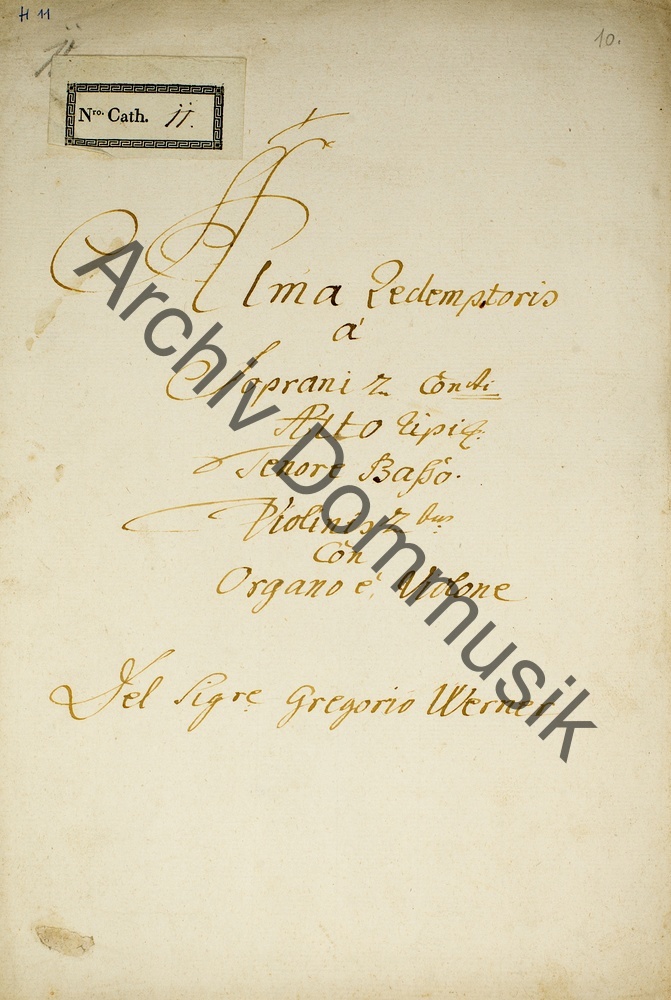 H 11
10.
11
Nro. Cath. 11.
Alma Redemptoris
à
Soprani 2 Conti
Alto Ripi:
Tenore Basso.
Violinis 2bus
Con
Organo è Violone
Del Sigre Gregorio Werner
Archiv Dommusik